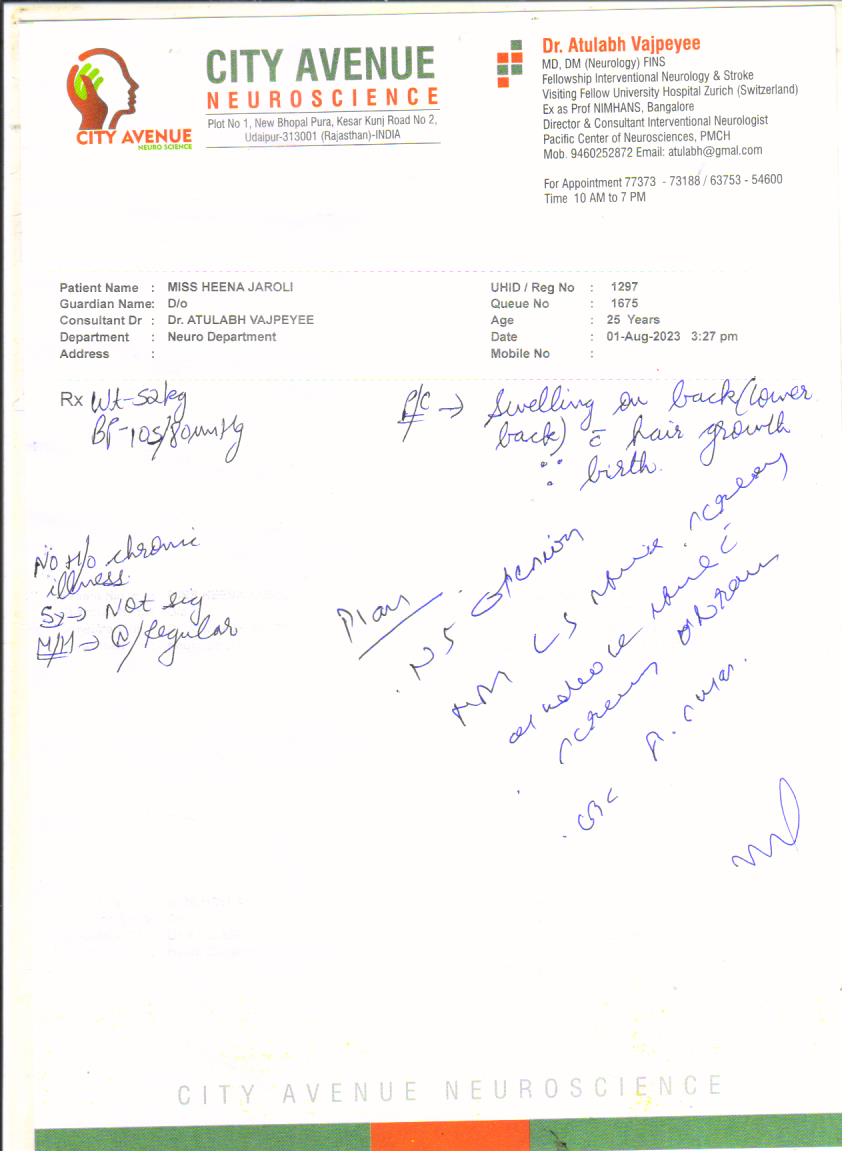 CITY AVENUE
NEURO SCIENCE
CITY AVENUE
NEUROSCIENCE
Plot No 1, New Bhopal Pura, Kesar Kunj Road No 2,
Udaipur-313001 (Rajasthan)-INDIA
Dr. Atulabh Vajpeyee
MD, DM (Neurology) FINS
Fellowship Interventional Neurology & Stroke
Visiting Fellow University Hospital Zurich (Switzerland)
Ex as Prof NIMHANS, Bangalore
Director & Consultant Interventional Neurologist
Pacific Center of Neurosciences, PMCH
Mob. 9460252872 Email: atulabh@gmal.com
For Appointment 77373 - 73188 / 63753 - 54600
Time 10 AM to 7 PM
Patient Name : MISS HEENA JAROLI
Guardian Name: D/o
Consultant Dr : Dr. ATULABH VAJPEYEE
Department : Neuro Department
Address :
UHID / Reg No : 1297
Queue No : 1675
Age : 25 Years
Date : 01-Aug-2023 3:27 pm
Mobile No :
Rx Wt-52kg
BP-105/80mmHg
P/C → Swelling on back (lower
back) c̄ hair growth
∵ birth.
No H/o chronic
illness
Sx → Not sig
M/H → (N)/Regular
Plan
NS opinion
screening
CBC
CITY AVENUE NEUROSCIENCE